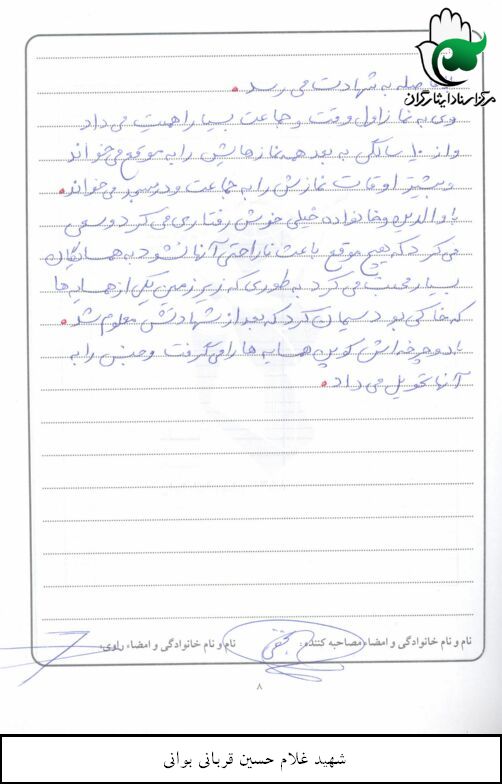 مرکز اسناد ایثارگران
به شهادت می رسد.
وی به نماز اول وقت و جماعت بسیار اهمیت می داد
و از ۱۰ سالگی به بعد همه نمازهایش را به موقع می خواند
و بیشتر اوقات نمازش را به جماعت و در مسجد می خواند.
با والدین و خانواده خیلی خوش رفتاری می کرد و سعی
می کرد که هیچ موقع باعث ناراحتی آنها نشود به همسایگان
بسیار محبت می کرد به طوری که زیرزمین یکی از همسایه ها
که خاکی بود سیمان کرد که بعد از شهادتش معلوم شد.
با دوچرخه اش کوپن همسایه ها را می گرفت و جنس را به
آنها تحویل می داد.
نام و نام خانوادگی و امضاء مصاحبه کننده: نام و نام خانوادگی و امضاء راوی:
۸
شهید غلام حسین قربانی بوانی